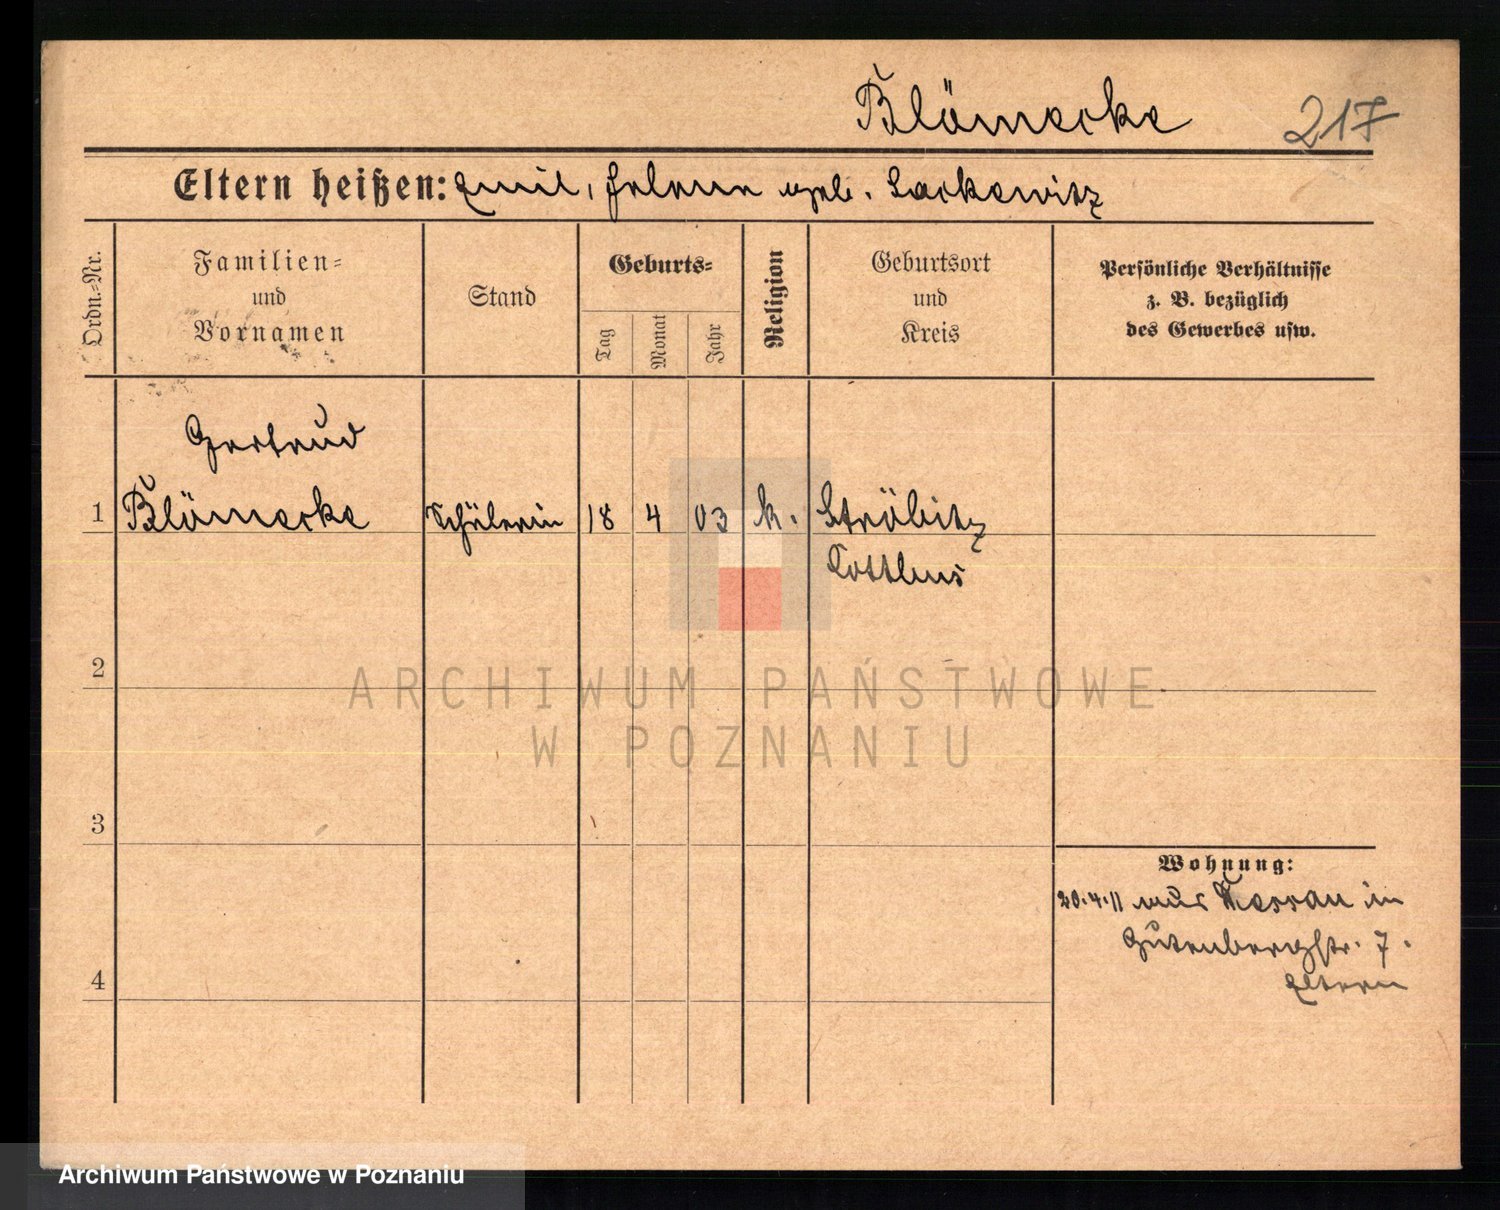 Blömecke 217
Eltern heißen: Emil, Helene geb. Lackowitz
Ordn.-Nr.
Familien-
und
Vornamen
Stand
Geburts-
Tag
Monat
Jahr
Religion
Geburtsort
und
Kreis
Persönliche Verhältnisse
z. B. bezüglich
des Gewerbes usw.
Gertrud
1 Blömecke Schülerin 18 4 03 k. Ströbitz
Cottbus
2
3
4
Wohnung:
20.4.11 aus Dessau in
Gutenbergstr. 7.
Eltern
ARCHIWUM PAŃSTWOWE
W POZNANIU
Archiwum Państwowe w Poznaniu